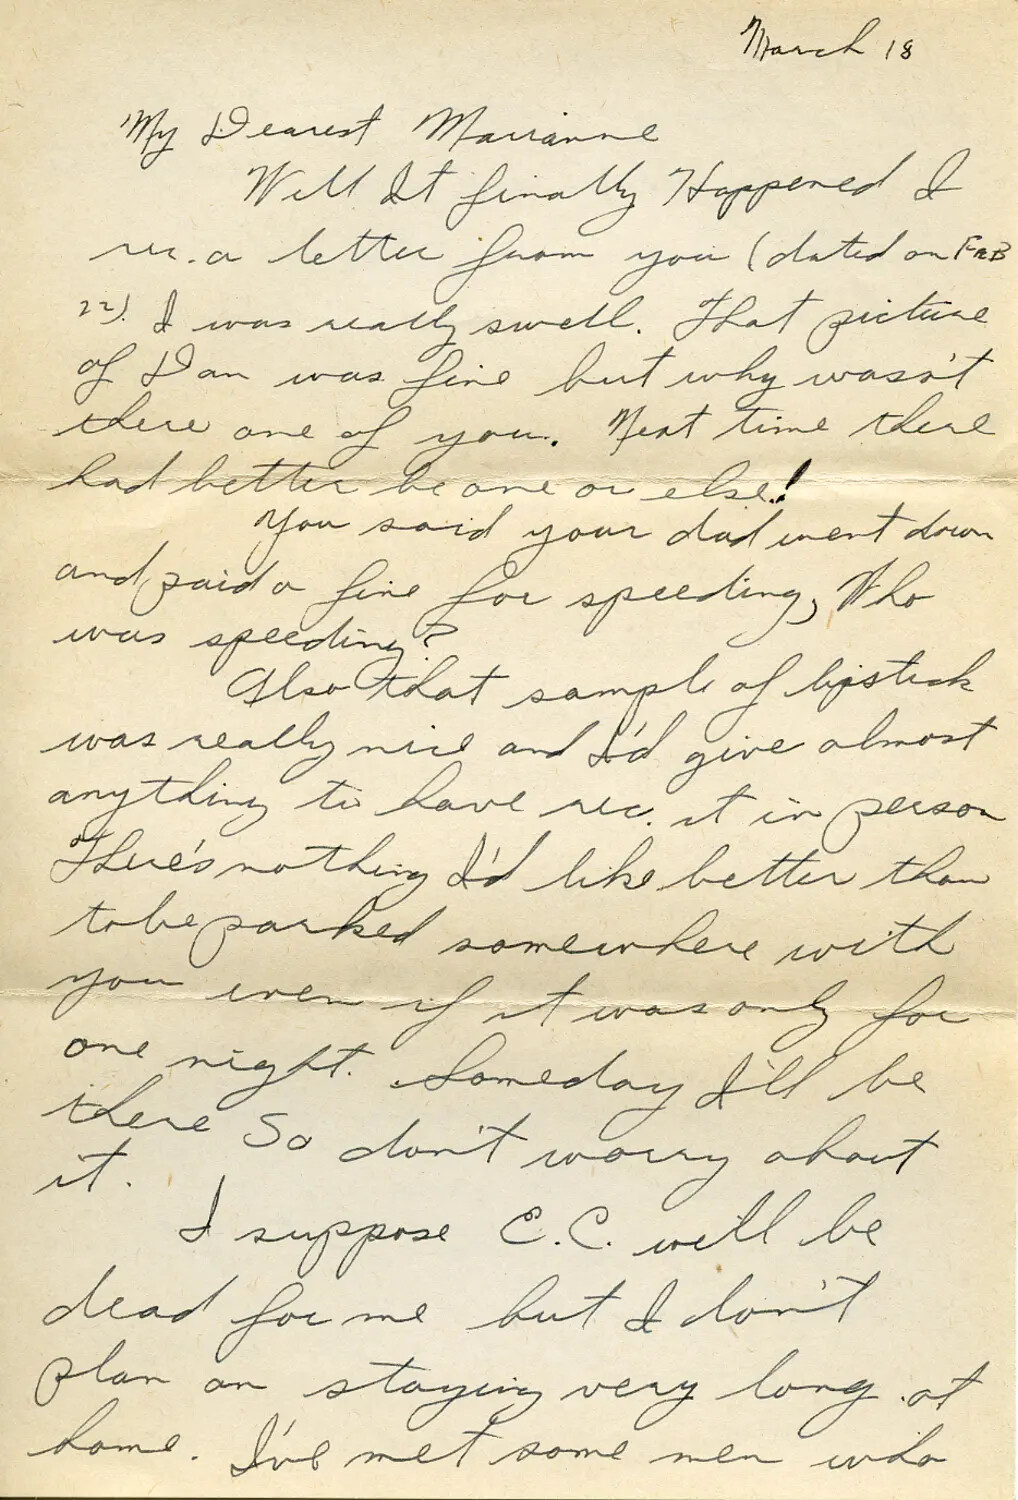 March 18
My Dearest Marianne
Well It finally Happened I
rec. a letter from you (dated on FEB
22). I was really swell. That picture
of Dan was fine but why wasn't
there one of you. Next time there
had better be one or else!
You said your dad went down
and paid a fine for speeding, Who
was speeding?
Also that sample of lipstick
was really nice and I'd give almost
anything to have rec. it in person
There's nothing I'd like better than
to be parked somewhere with
you even if it was only for
one night. Someday I'll be
there So don't worry about
it.
I suppose E.C. will be
dead for me but I don't
plan on staying very long at
home. I've met some men who